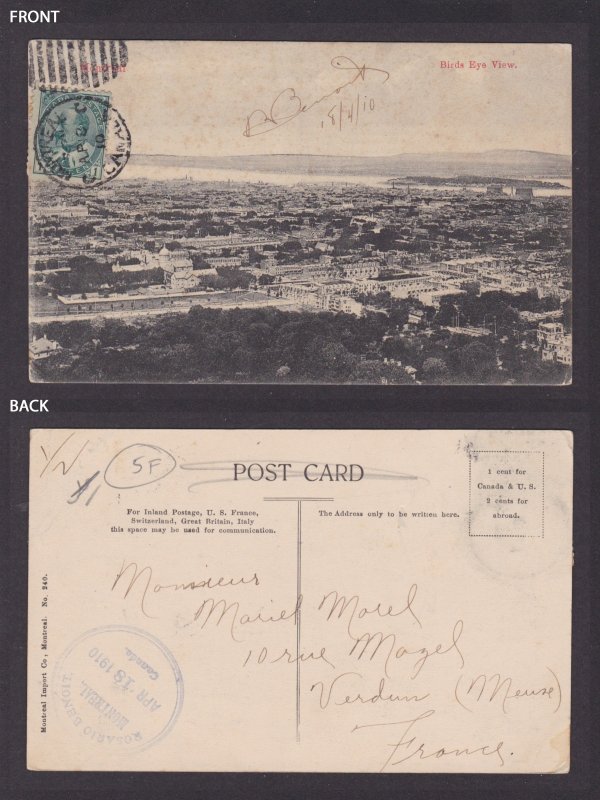 FRONT
Montreal
Birds Eye View.
B Benoit
18/4/10
MONTREAL
CANADA
BACK
1/2
5F
POST CARD
1 cent for
Canada & U. S.
2 cents for
abroad.
For Inland Postage, U. S. France,
Switzerland, Great Britain, Italy
this space may be used for communication.
The Address only to be written here.
Monsieur
Mariel Morel
10 rue Mazel
Verdun (Meuse)
France.
ROSARIO BENOIT.
APR 18 1910
MONTREAL,
Canada.
Montreal Import Co., Montreal. No. 240.